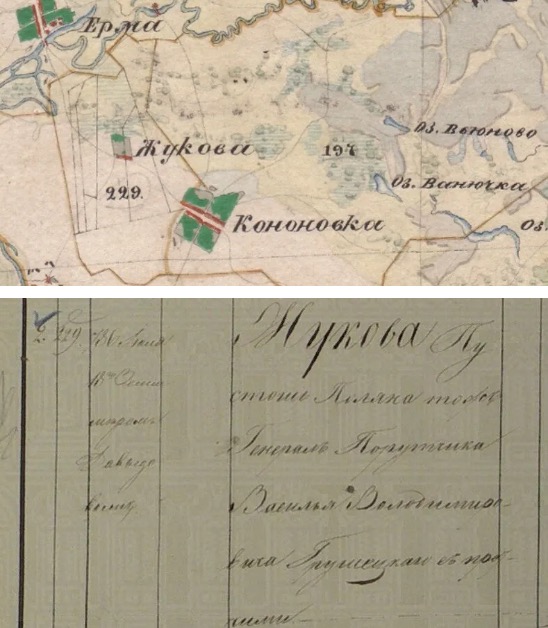 Ерма
Жукова
197
Оз. Вьюново
229.
Оз. Ванючка
Кононовка
Оз.
2. 229.
Жукова Пу
стошь Поляна тожъ
Генералъ Порутчика
Василья Володимиро-
вича Грушецкаго съ про-
чими